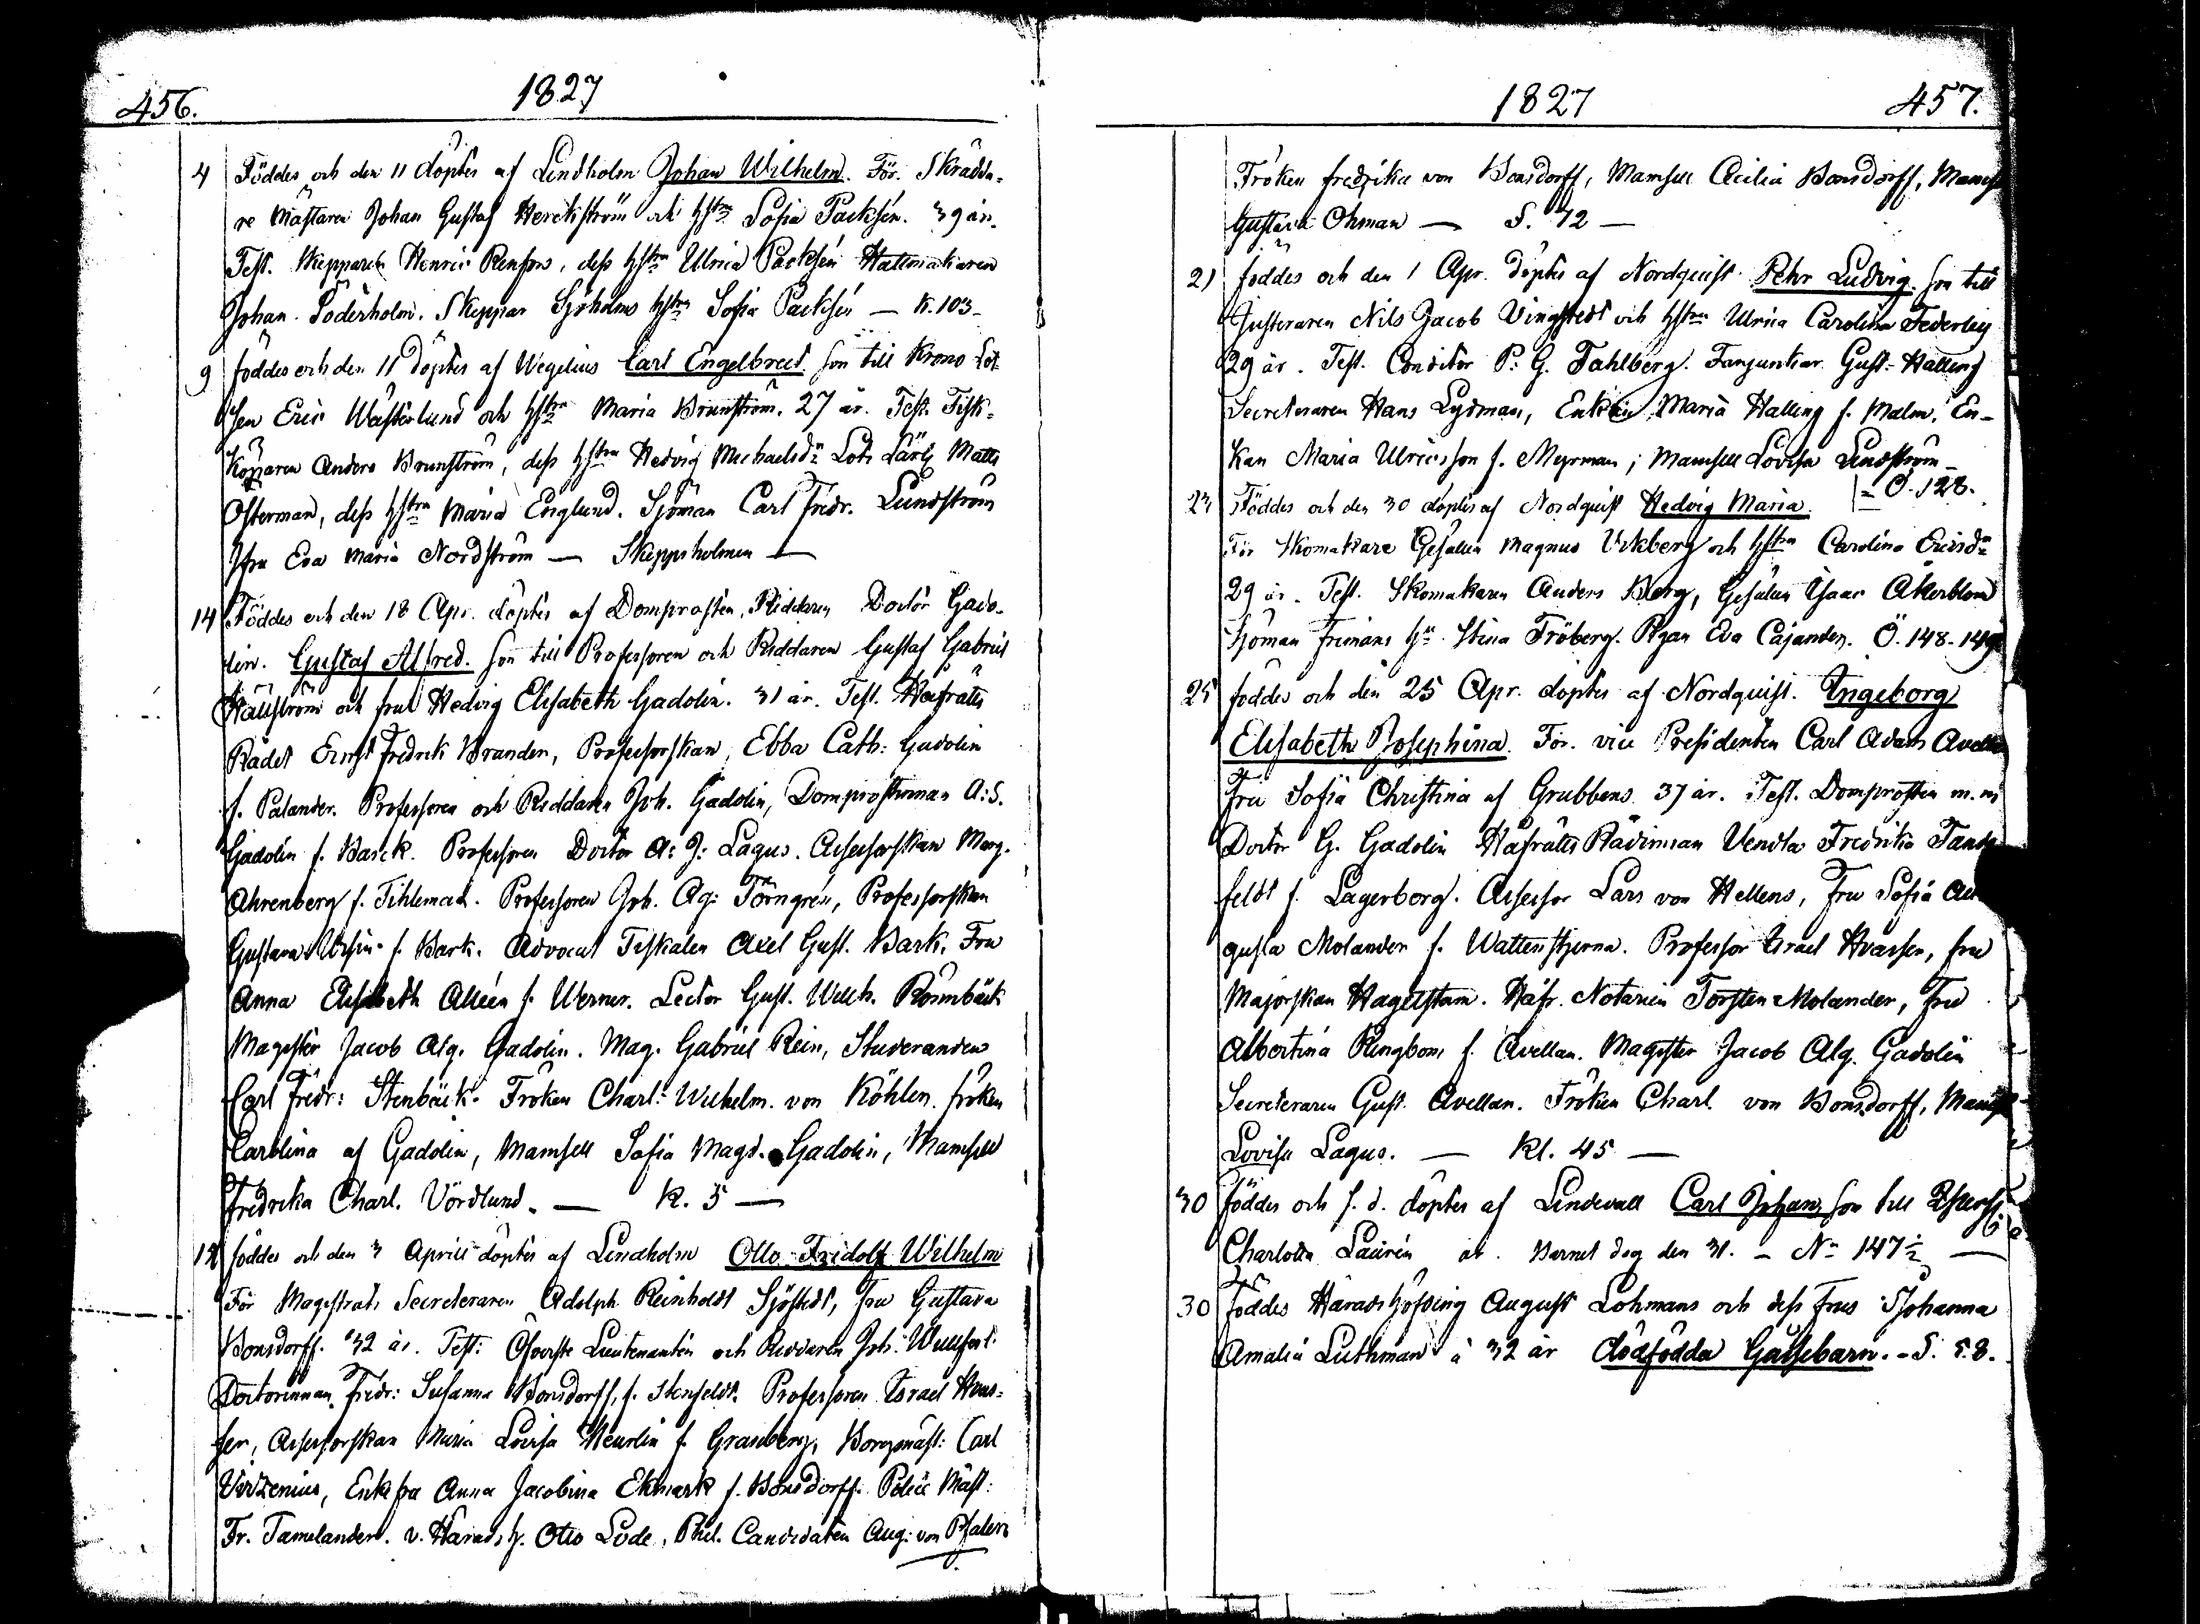 456.
1827
4 Föddes och den 11 döptes af Lindholm Johan Wilhelm. För. Skrädda-
re Mästaren Johan Gustaf Herckström och hstru Sofia Packsén. 39 år.
Test. Skepparen Henric Renfors, dess hstru Ulrica Packsén Hattmakaren
Johan Söderholm. Skeppar Sjöholms hstru Sofia Packsén — K. 103 -
9 föddes och den 11 döptes af Wegelius Carl Engelbrect. son till Krono Lot
sen Eric Westerlund och hstru Maria Brunström. 27 år. Test. Fisk-
köparen Anders Brunström, dess hstru Hedvig Michaelsdr Lots Lärl. Matts
Österman, dess hstru Maria Englund. Sjöman Carl Fredr. Lundström
Jfru Eva Maria Nordström — Skeppsholmen —
14 Föddes och den 18 Apr. döptes af Domprosten, Riddaren Doctor Gado-
lin. Gustaf Alfred. son till Professoren och Riddaren Gustaf Gabriel
Hällström och frul Hedvig Elisabeth Gadolin. 31 år. Test. Håfrätts
Rådet Ernst Fredrik Brander, Professorskan, Ebba Cath: Gadolin
f. Palander. Professoren och Riddaren Joh. Gadolin, Domprostinnan A:S.
Gadolin f. Basck. Professoren Doctor A: J: Lagus. Assessorskan Marg.
Ahrenberg f. Tihleman. Professoren Joh. Ag: Törngrén, Professorskan
Gustava Ursin f. Bark. Advocat Fiskalen Axel Gust. Bark. Fru
Anna Elisabeth Alléen f. Werner. Lector Gust. Wilh. Rosmbäck
Magister Jacob Alg. Gadolin. Mag. Gabriel Rein, Studeranden
Carl Fredr: Stenbäck. Fröken Charl: Wilhelm. von Köhlen. fröken
Carolina af Gadolin, Mamsell Sofia Magd. Gadolin, Mamsell
Fredrika Charl. Vördlund. — K. 5 —
föddes och den 3 Aprill döptes af Lindholm Otto Fridolf Wilhelm
För Magistrats Secreteraren Adolph Reinholdt Sjöstedt, fru Gustava
Bonsdorff. 32 år. Test: Öfverste Lieutenanten och Riddaren Joh.
Doctorinnan Fredr: Susanna Bonsdorff, f. Stenfeldt. Professoren Israel Hvas-
ser, Assessorskan Maria Lovisa Heurlin f. Granberg, Borgmäst: Carl
Virzenius, Enkefru Anna Jacobina Ekmark f. Bonsdorff. Police Mäst:
Fr. Tamelander. v. Häradsh. Otto Lode, Phil. Candidaten Aug: von Pfaler
1827
457.
Fröken fredrika von Bonsdorff, Mamsell Cecilia Bonsdorff, Mams
Gustava Öhman — S. 72 —
21 föddes och den 1 Apr. döptes af Nordquist Pehr Ludvig. son till
Justeraren Nils Jacob Vingstedt och hstru Ulrica Carolina Federley
29 år. Test. Conditor P: G. Fahlberg. Fanjunkar Gust: Halling
Secreteraren Hans Lydman, Enkan Maria Halling f. Malm. En-
kan Maria Ulricsson f. Meyrman; Mamsell Lovisa Lindström -
= Ö. 128.
23 Föddes och den 30 döptes af Nordquist Hedvig Maria.
För Skomakare Gesällen Magnus Vikberg och hstru Carolina Ericsdr
29 år. Test. Skomakaren Anders Berg, Gesällen Isaac Åkerblom
Sjöman Frimans hu Stina Fröberg. Pigan Eva Cajander. Ö. 148-149
25 föddes och den 25 Apr. döptes af Nordquist. Ingeborg
Elisabeth Josephina. För. vice Presidenten Carl Adam Avellan
Fru Sofia Christina af Grubbens 37 år. Test. Domprosten m.m
Doctor G. Gadolin Håfrätts Rådinnan Vendla Fredrika Tande
feldt f. Lagerborg. Assessor Lars von Hellens, Fru Sofia Au
gusta Molander f. Wattenstjerna. Professor Israel Hvasser, fru
Majorskan Hagelstam. Håfr. Notarien Torsten Molander, Fru
Albertina Ringbom f. Avellan. Magister Jacob Alg. Gadolin
Secreteraren Gust. Avellan. Fröken Charl. von Bonsdorff, Mams
Lovisa Lagus. — Kl. 45 —
30 föddes och s. d. döptes af Lindevall Carl Johan son till
Charlotta Laurén år. Barnet dog den 31. — No 147½ —
30 föddes Häradshöfding August Lohmans och dess Frus Johanna
Amalia Luthman à 32 år dödfödda Gåssebarn. - S. 58.